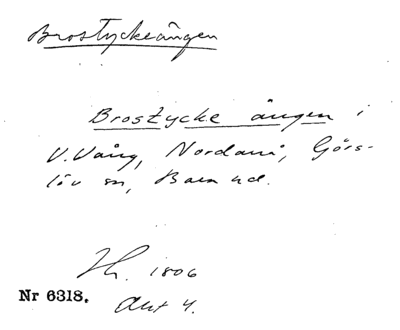 Brostyckeängen
Brostycke ängen i
V. Vång, Nordanå, Görs-
löv sn, Bara hd.
Hh. 1806
Nr 6318.
Akt 4.